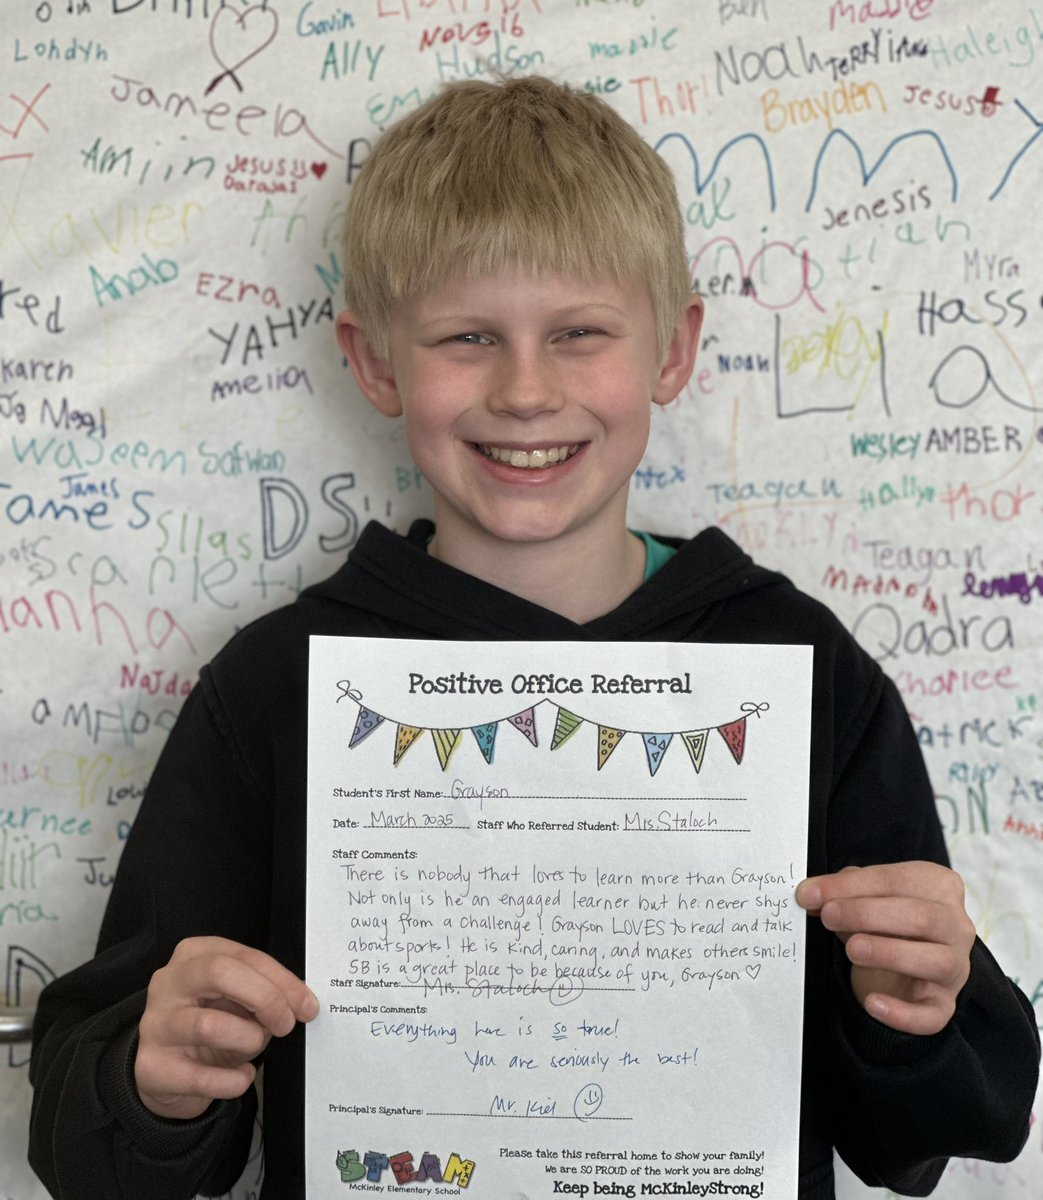 Gavin
NOVS 16
Ben
massie
Lohdyn
Ally
Hudson
massie
Noah
TERRY
Haleigh
Jameela
Thor!
Brayden
Jesus
Amiin
Jesus
Darajas
Jenesis
Xavier
Anab
Ezra
Myra
red
YAHYA
Hass
karen
Amelia
Noah
Lia
Wajeem
Safwan
Wesley
AMBER
James
James
Teagan
Hallye
thor
Silas
Scarlett
Teagan
Hanna
Qadra
Najda
Charlee
Positive Office Referral
Student's First Name: Grayson
Date: March 2025 Staff Who Referred Student: Mrs. Staloch
Staff Comments:
There is nobody that loves to learn more than Grayson!
Not only is he an engaged learner but he never shys
away from a challenge! Grayson LOVES to read and talk
about sports! He is kind, caring, and makes others smile!
5B is a great place to be because of you, Grayson ♡
Staff Signature: Mrs. Staloch
Principal's Comments:
Everything here is so true!
You are seriously the best!
Principal's Signature: Mr. Kiel
STEAM
McKinley Elementary School
Please take this referral home to show your family!
We are SO PROUD of the work you are doing!
Keep being McKinleyStrong!